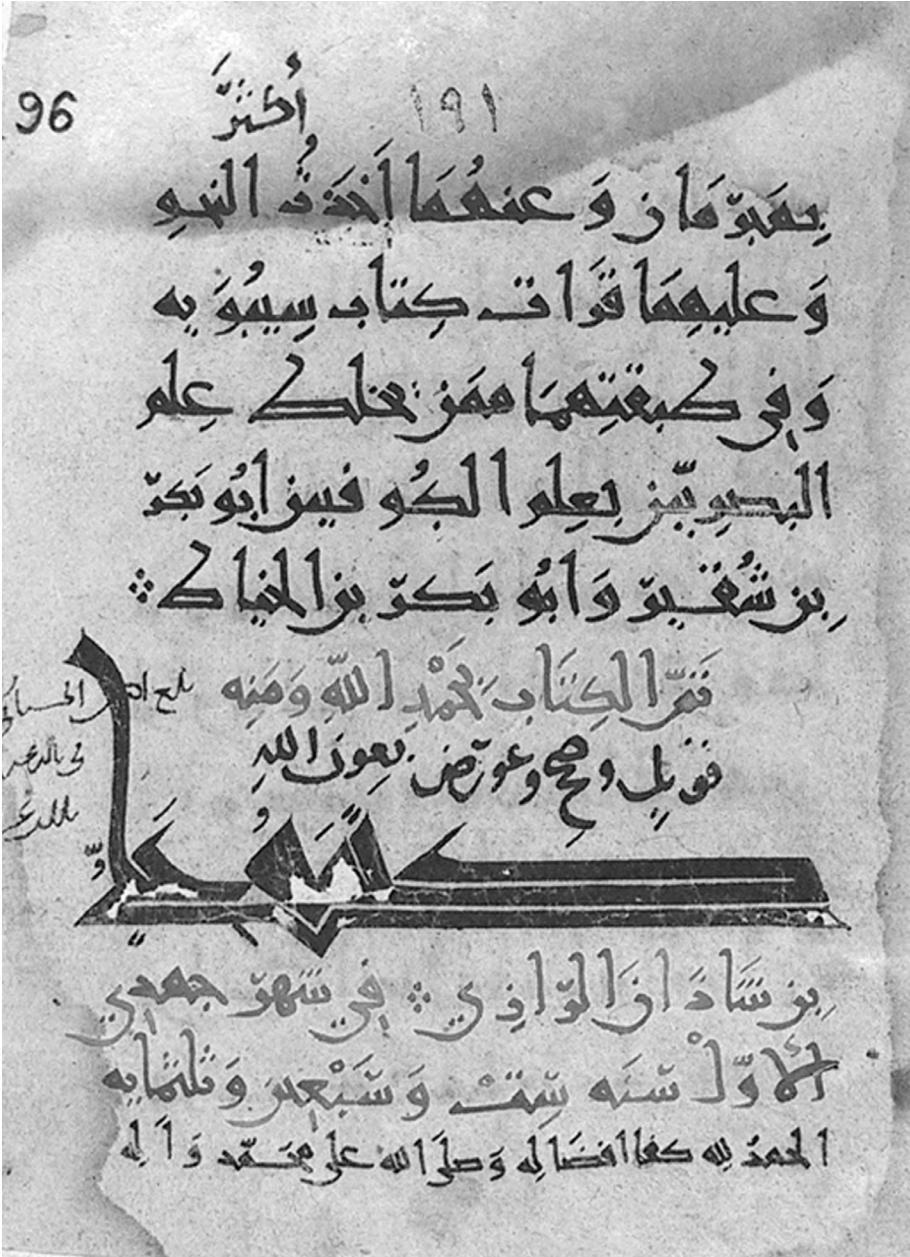 96
١٩١
أكثر
بمبرمان وَعنهُمَا أَخَذتُ النحوِ
وَعليهِمَا قرَات كِتاب سِيبُوَيه
وَفِي طبقتِهمَا ممَن خلط عِلم
البصرِيّين بِعلم الكُوفيين ابُو بَكر
بِن شُقَير وَابُو بَكر بن الخياط
تَمَّ الكِتَاب بحَمْدِ اللهِ وَمَنِه
قوبِل وصحح وعورض بعون اللهِ
كتبهُ علي
بِن شَاذَان الرازِي فِي شَهر جمدِي
الاوّلْ سَنَه سِتْ وَسَبْعِين وَثلثمايه
الحمدُ لله كفا افضَاله وَصلى الله على محَمّد وَاَله
بلغ